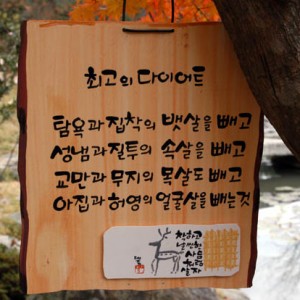 최고의 다이어트
탐욕과 집착의 뱃살을 빼고
성냄과 질투의 속살을 빼고
교만과 무지의 목살도 빼고
아집과 허영의 얼굴살을 빼는것
착하고
사슴
처럼
살자